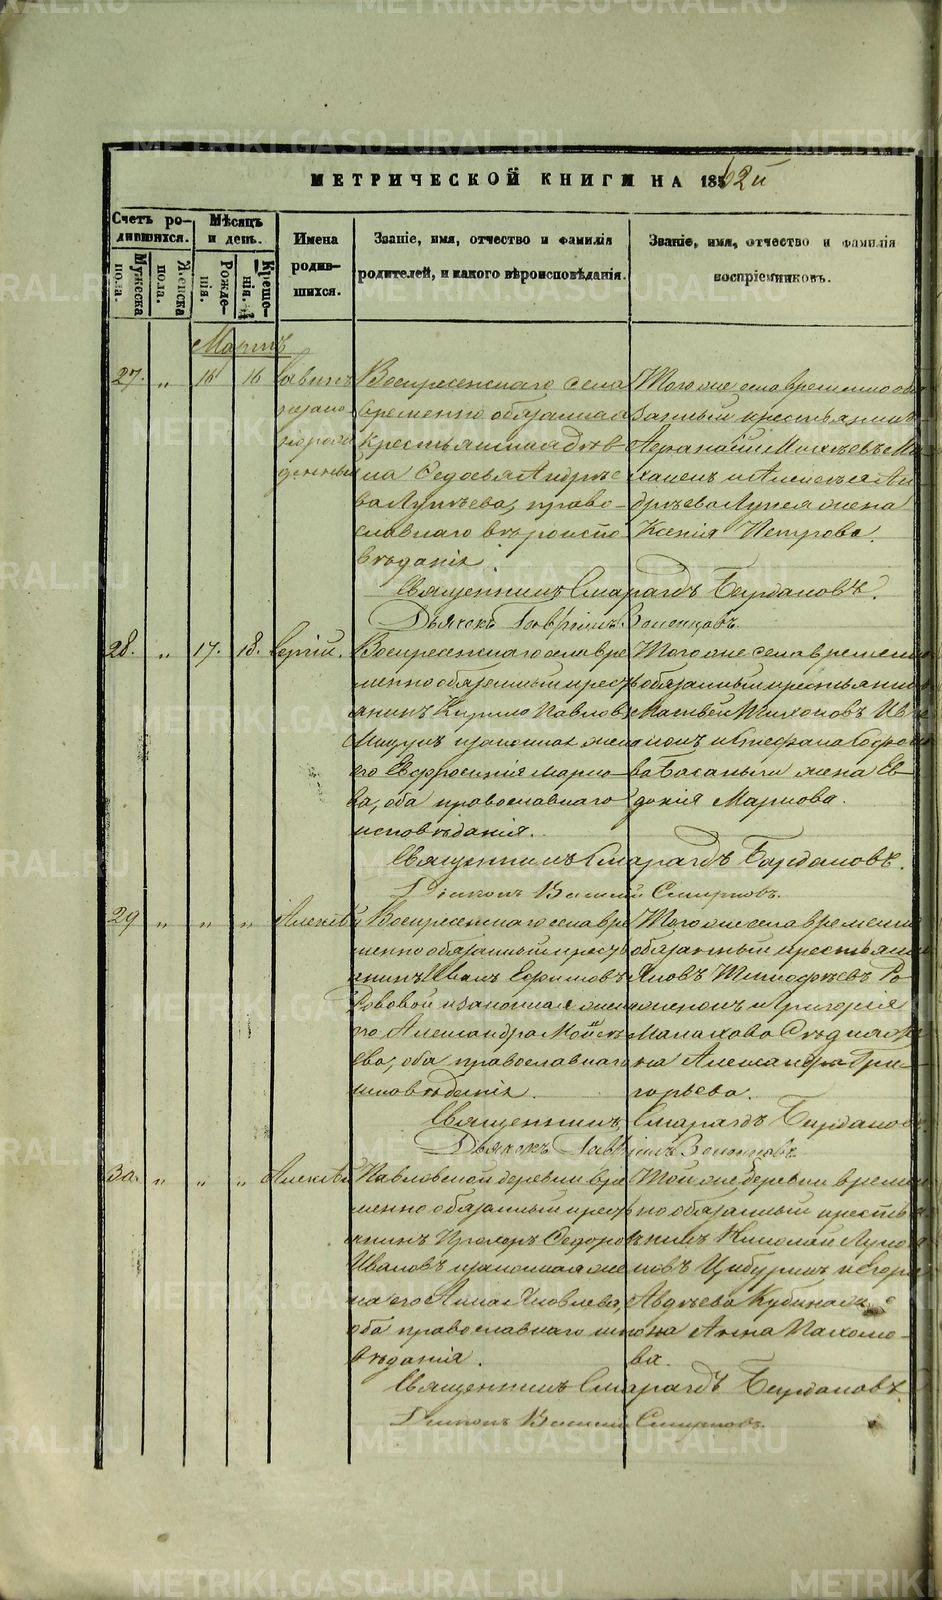 МЕТРИЧЕСКОЙ КНИГИ НА 1862й
Счетъ ро-
дившихся.
Мужеска
пола.
Женска
пола.
Мѣсяцъ
и день.
Рожде-
нія.
Креще-
нія.
Имена
родив-
шихся.
Званіе, имя, отчество и фамилія
родителей, и какого вѣроисповѣданія.
Званіе, имя, отчество и фамилія
воспріемниковъ.
Мартъ
27. " 16 16 Савинъ
незако
норож
денный
Воскресенскаго села
временно обязанная
крестьянская дѣв-
ка Федосья Андрѣе
ва Лунѣева, право-
славнаго вѣроиспо
вѣданія.
Того же села временно обя
занный крестьянинъ
Афанасій Моисѣевъ
и Алексѣя Ан
дрѣева жена
Ксенія Петрова.
Священникъ Смарагдъ Бирдановъ.
Дьячокъ Гавріилъ
28. " 17. 18. Сергій.
Воскресенскаго села вре
менно обязанный крест
янинъ Кирило Павловъ
и законная жена
его Евфросинія Марко
ва, оба православнаго
исповѣданія.
Того же села времен
обязанный крестьянин
Матвей Тихоновъ
и Стефана
жена Ев-
докія Маркова.
Священникъ Смарагдъ Бирдановъ.
Діаконъ Василій Смирновъ.
29 " " " Алексѣй
Воскресенскаго села вре
менно обязанный крест
янинъ Иванъ Ефимовъ
и законная жена
его Александра Мойсѣ
ева, оба православнаго
исповѣданія.
Того же села времен
обязанный крестьян
Яковъ Тимофѣевъ
и Григорія
Малахова
на Александра Гри-
горьева.
Священникъ Смарагдъ Бирдановъ
Дьячокъ Гавріилъ
30. " " " Алексѣй
Павловской деревни вре
менно обязанный крест
янинъ Прохоръ Федоровъ
Ивановъ и законная же
на его Анна Яковлева
оба православнаго испо
вѣданія.
Той же деревни времен
но обязанный крестья
нинъ Николай
и Егора
Авдѣева
жена Анна Пахомо-
ва.
Священникъ Смарагдъ Бирдановъ.
Діаконъ Василій Смирновъ.
METRIKI.GASO-URAL.RU